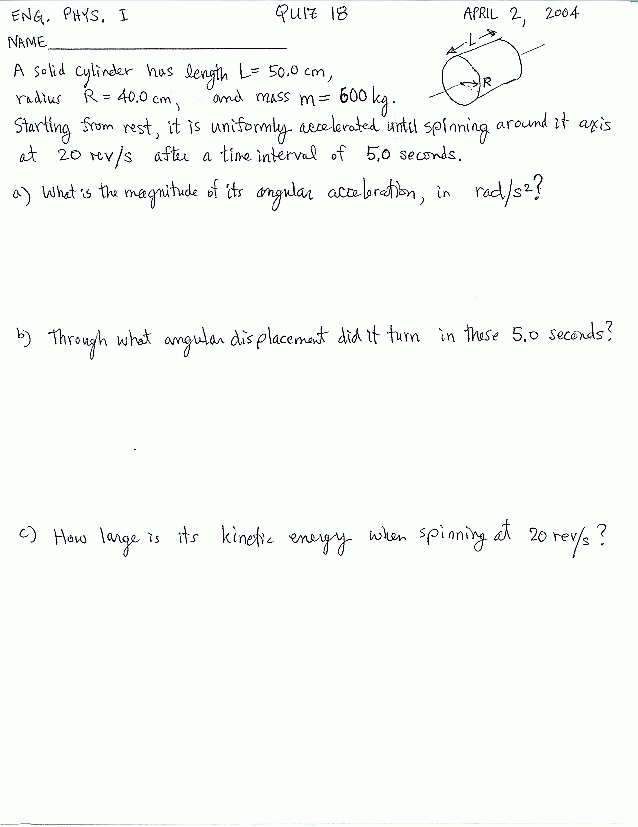 ENG. PHYS. I QUIZ 18 APRIL 2, 2004
NAME
L
R
A solid cylinder has length L= 50.0 cm,
radius R = 40.0 cm, and mass m = 600 kg.
Starting from rest, it is uniformly accelerated until spinning around it axis
at 20 rev/s after a time interval of 5.0 seconds.
a) What is the magnitude of its angular acceleration, in rad/s²?
b) Through what angular displacement did it turn in these 5.0 seconds?
c) How large is its kinetic energy when spinning at 20 rev/s?